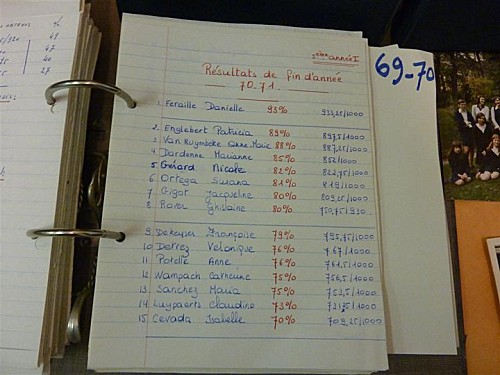 %
48
47
40
27
2ème année I
Résultats de fin d'année
70.71.
69-70
1. Feraille Danielle 93% 933,25/1000
2. Englebert Patricia 89% 897,5/1000
3 Van Ruymbeke Anne-Marie 88% 887,25/1000
4 Dardenne Marianne 85% 852/1000
5 Gérard Nicole 82% 822,75/1000
6 Ortega Susana 81% 819/1000
7 Gigot Jacqueline 80% 809,25/1000
8 Rover Ghislaine 80% 750,75/930
9 Dekeyser Françoise 79% 795,75/1000
10 Detrez Véronique 76% 767/1000
11 Potelle Anne 76% 761,5/1000
12 Wampach Catherine 75% 756,5/1000
13 Sanchez Maria 75% 753,5/1000
14 Luypaerts Claudine 73% /1000
15 Cevada Isabelle 70% 709,25/1000